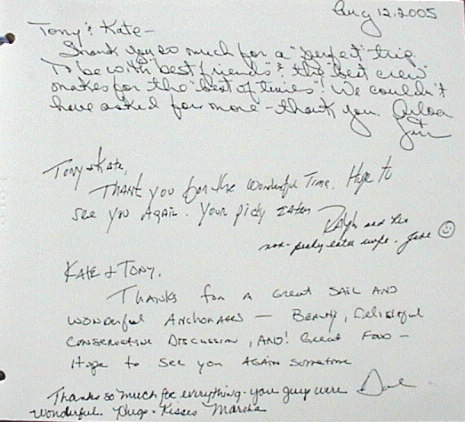 Aug 12, 2005
Tony & Kate -
Thank you so much for a "perfect" trip.
To be with "best friends" & the "best crew"
makes for the "best of times"! We couldn't
have asked for more - thank you.
Jim
Tony & Kate,
Thank you for the wonderful Time. Hope to
see you Again. Your picky Eater
Ralph and his
non-picky eater wife - Jane ☺
Kate & Tony,
Thanks for a Great Sail and
wonderful Anchorages — Beauty, Delightful
Conservative Discussion, AND! Great Food —
Hope to see you Again Sometime
Thanks so much for everything - you guys were
wonderful. Hugs & Kisses Marsha